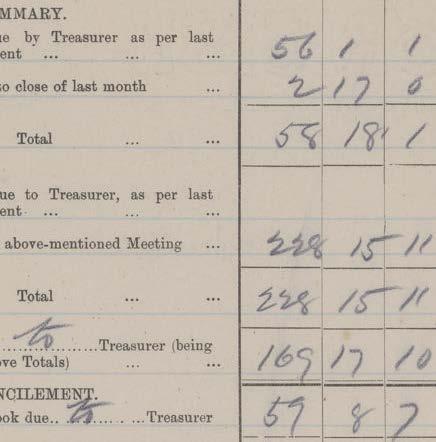 MMARY.
ue by Treasurer as per last
ent ... ... ... 56 1 1
to close of last month ... 2 17 0
Total ... ... 58 18 1
ue to Treasurer, as per last
ent ... ... ...
above-mentioned Meeting ... 228 15 11
Total ... ... 228 15 11
to Treasurer (being
ove Totals) ... ... 169 17 10
NCILEMENT.
ook due.. to ... ...Treasurer 59 8 7